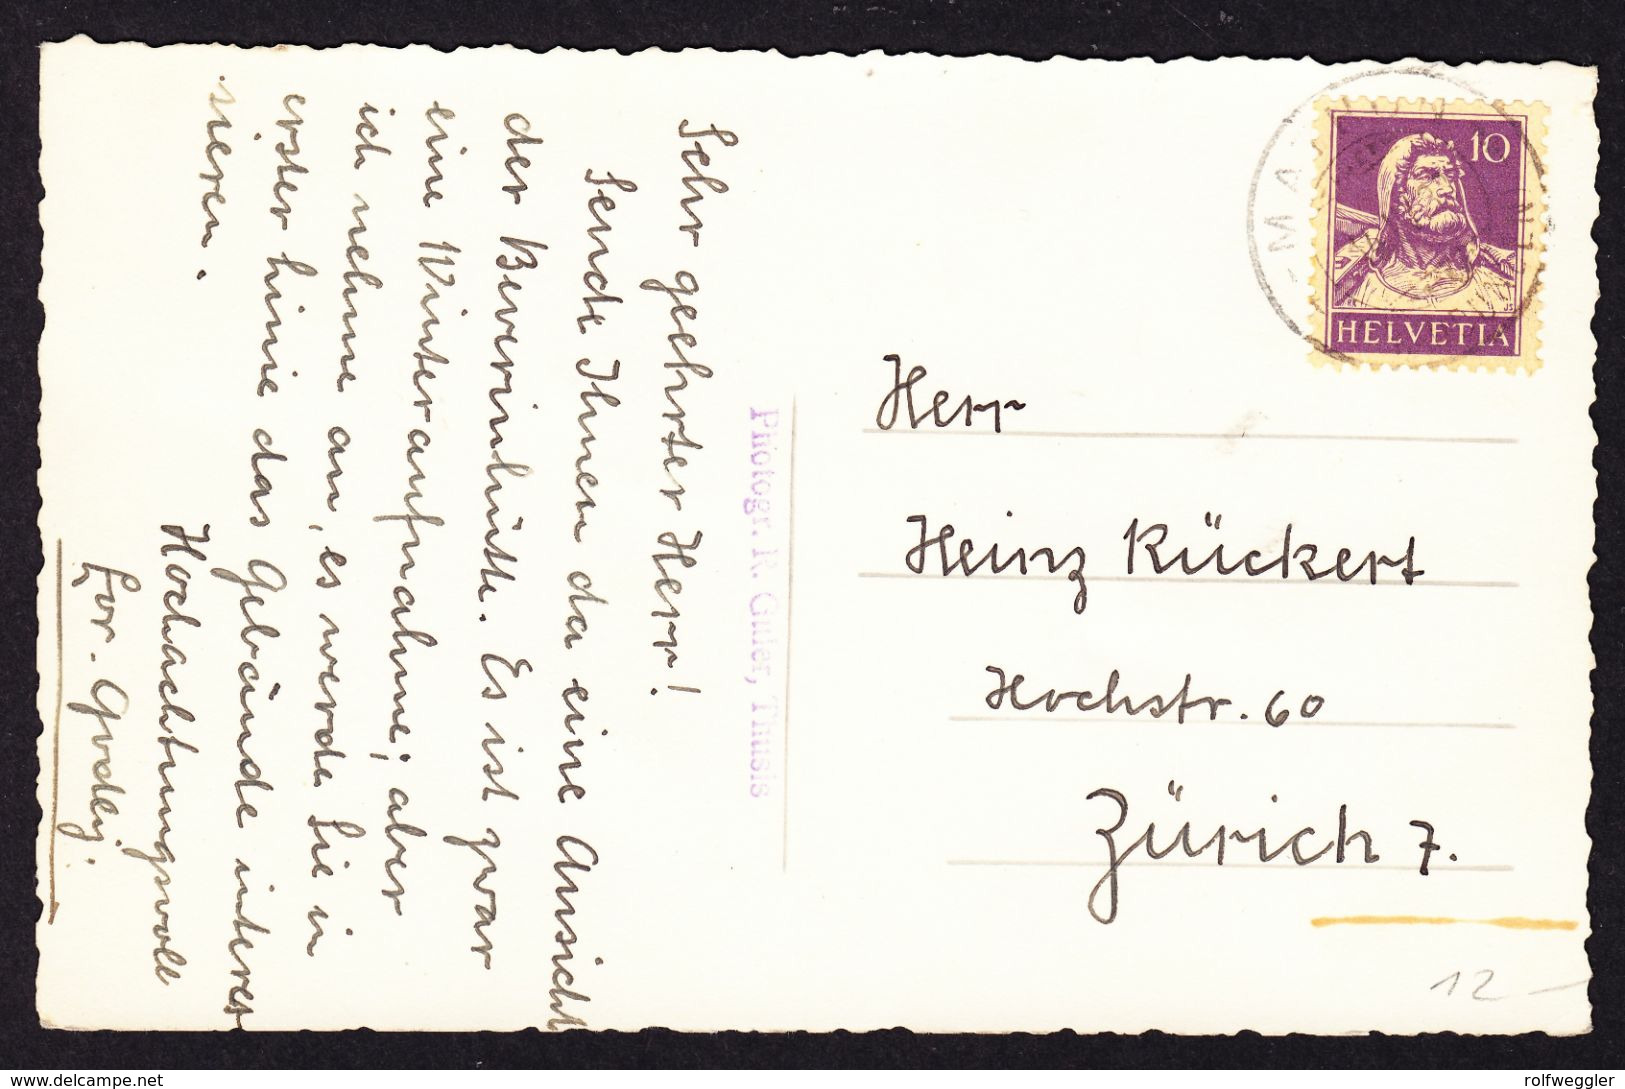 Sehr geehrter Herr!
Sende Ihnen da eine Ansicht
der Beverinhütte. Es ist zwar
eine Winteraufnahme; aber
ich nehme an, es werde Sie in
erster Linie das Gebäude interes
sieren.
Hochachtungsvoll
Photogr. R. Guler, Thusis
10
HELVETIA
Herr
Heinz Rückert
Hochstr. 60
Zürich 7.
12 -
rolfweggler
delcampe.net